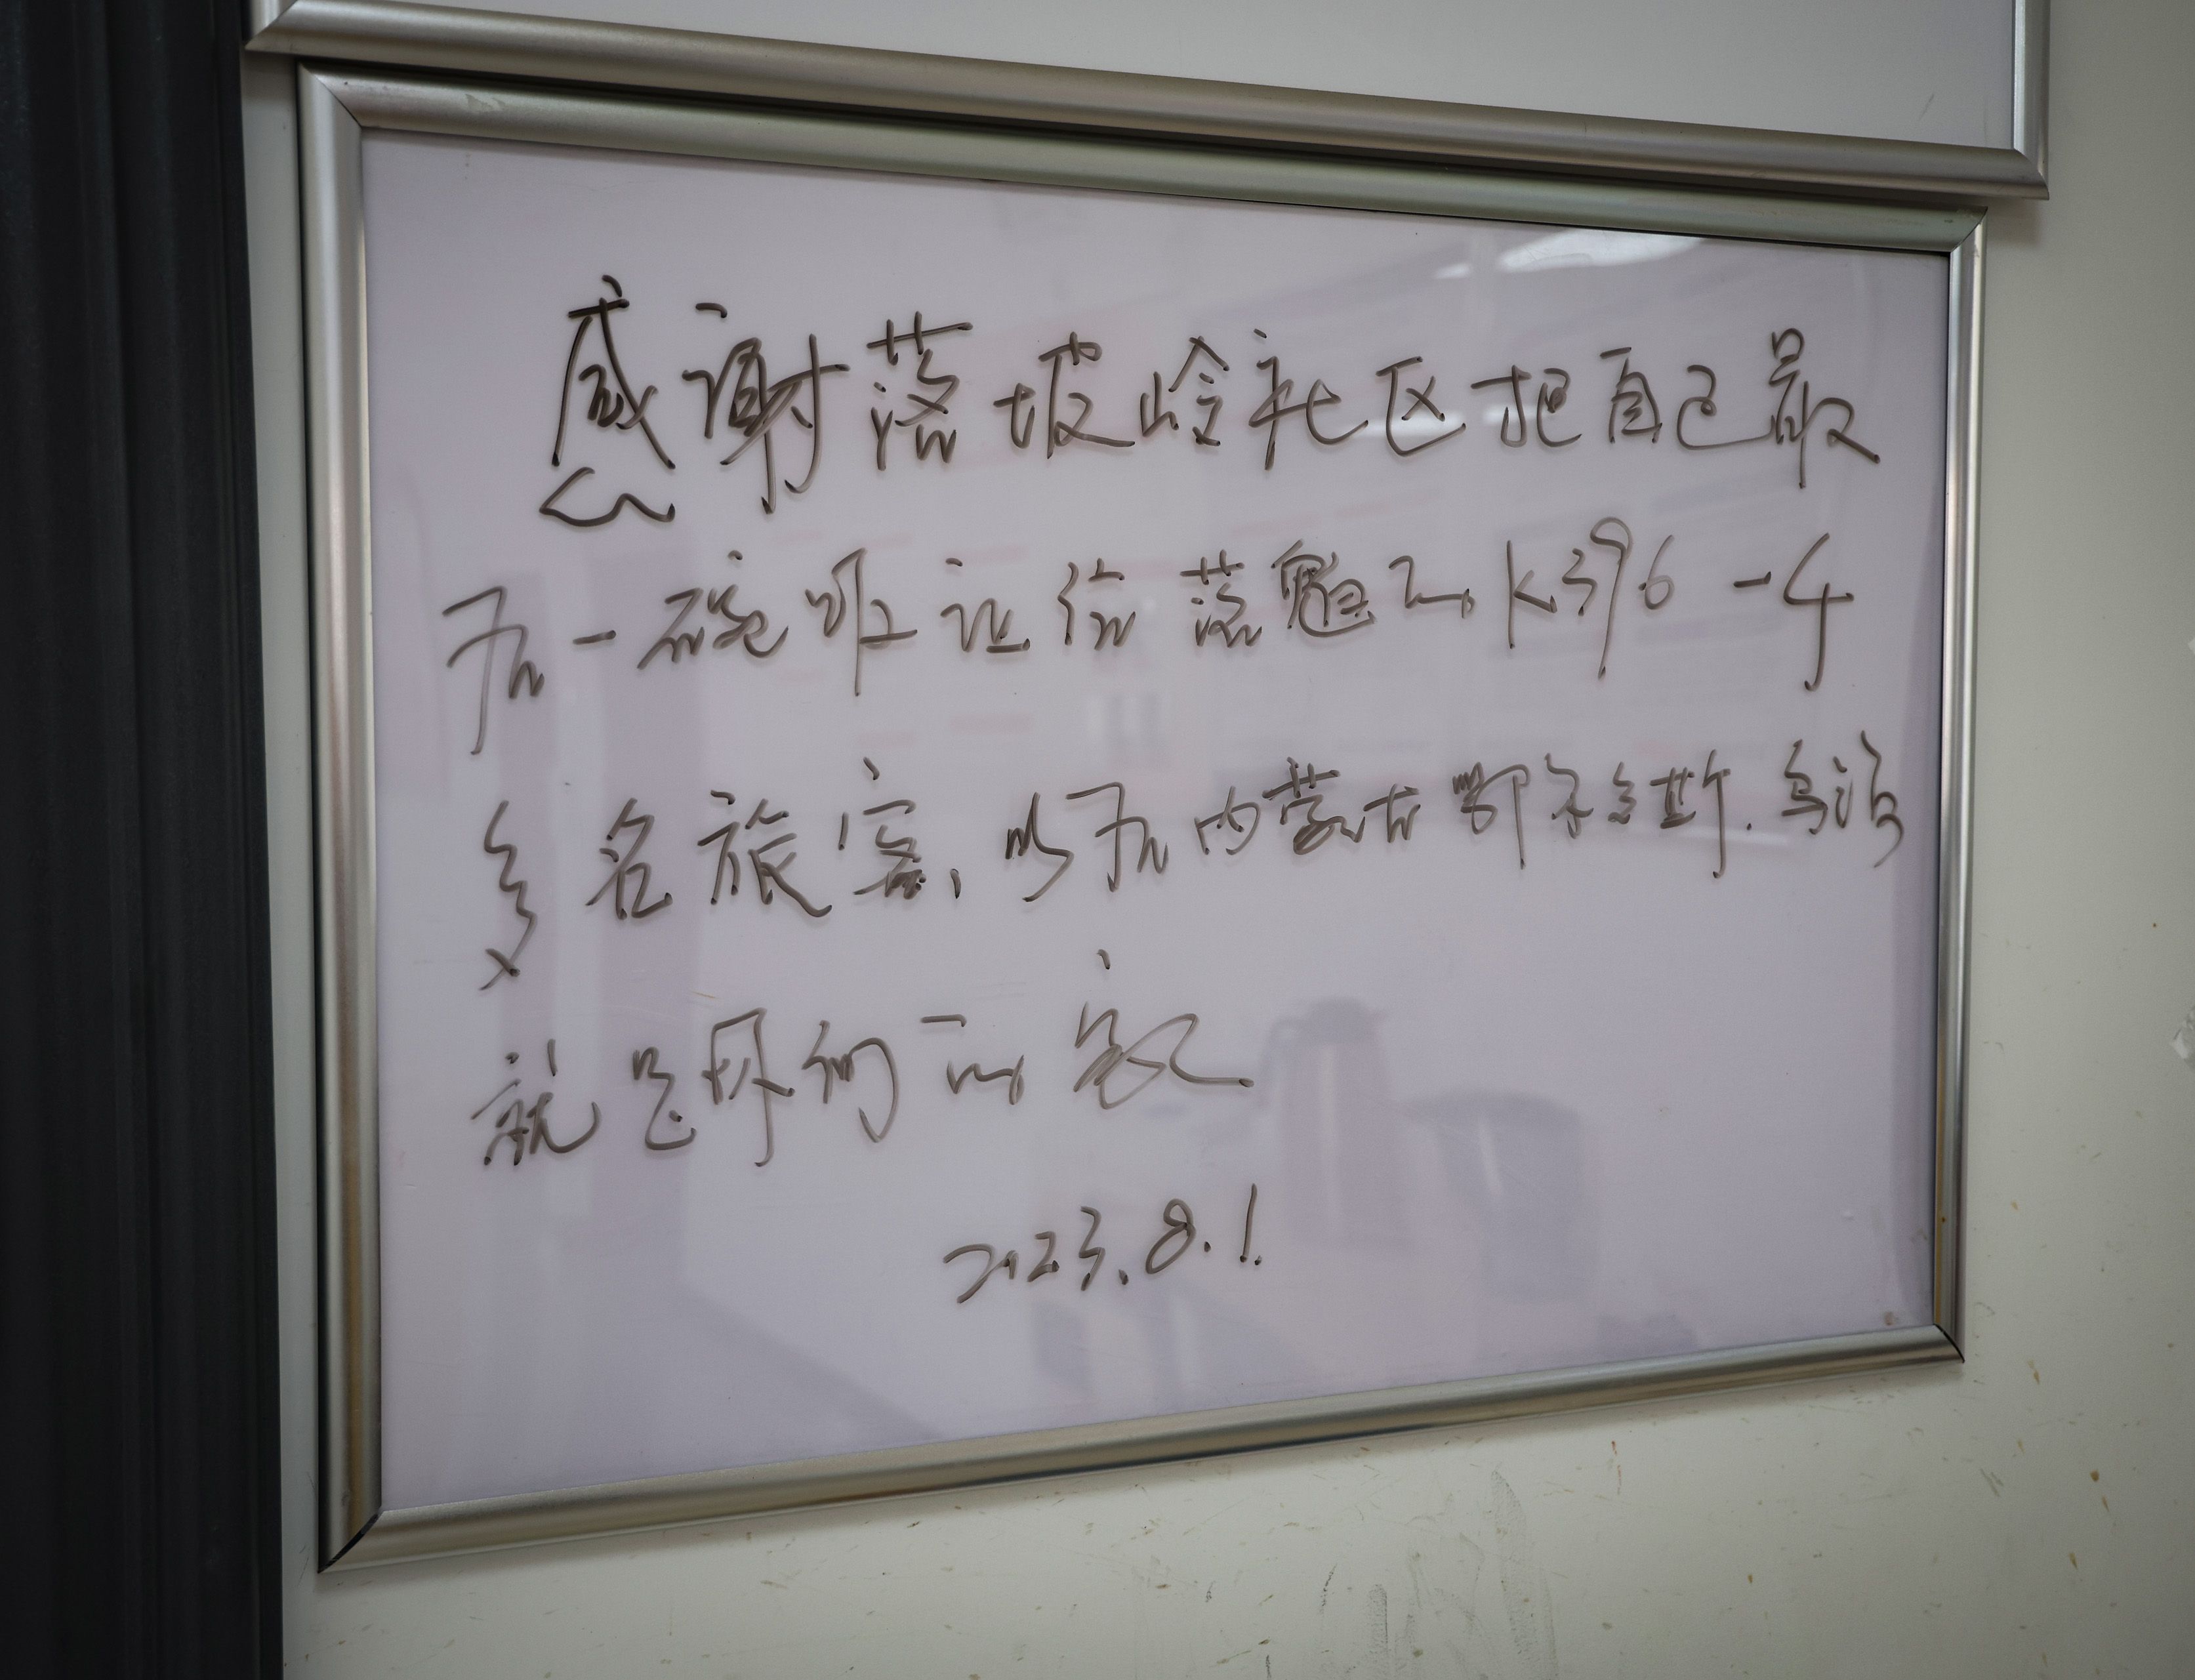 感谢落坡岭社区把自己最
后一碗饭让给落魄的K396一千
多名旅客,以后内蒙古鄂尔多斯.乌海
就是你们的家
2023.8.1.